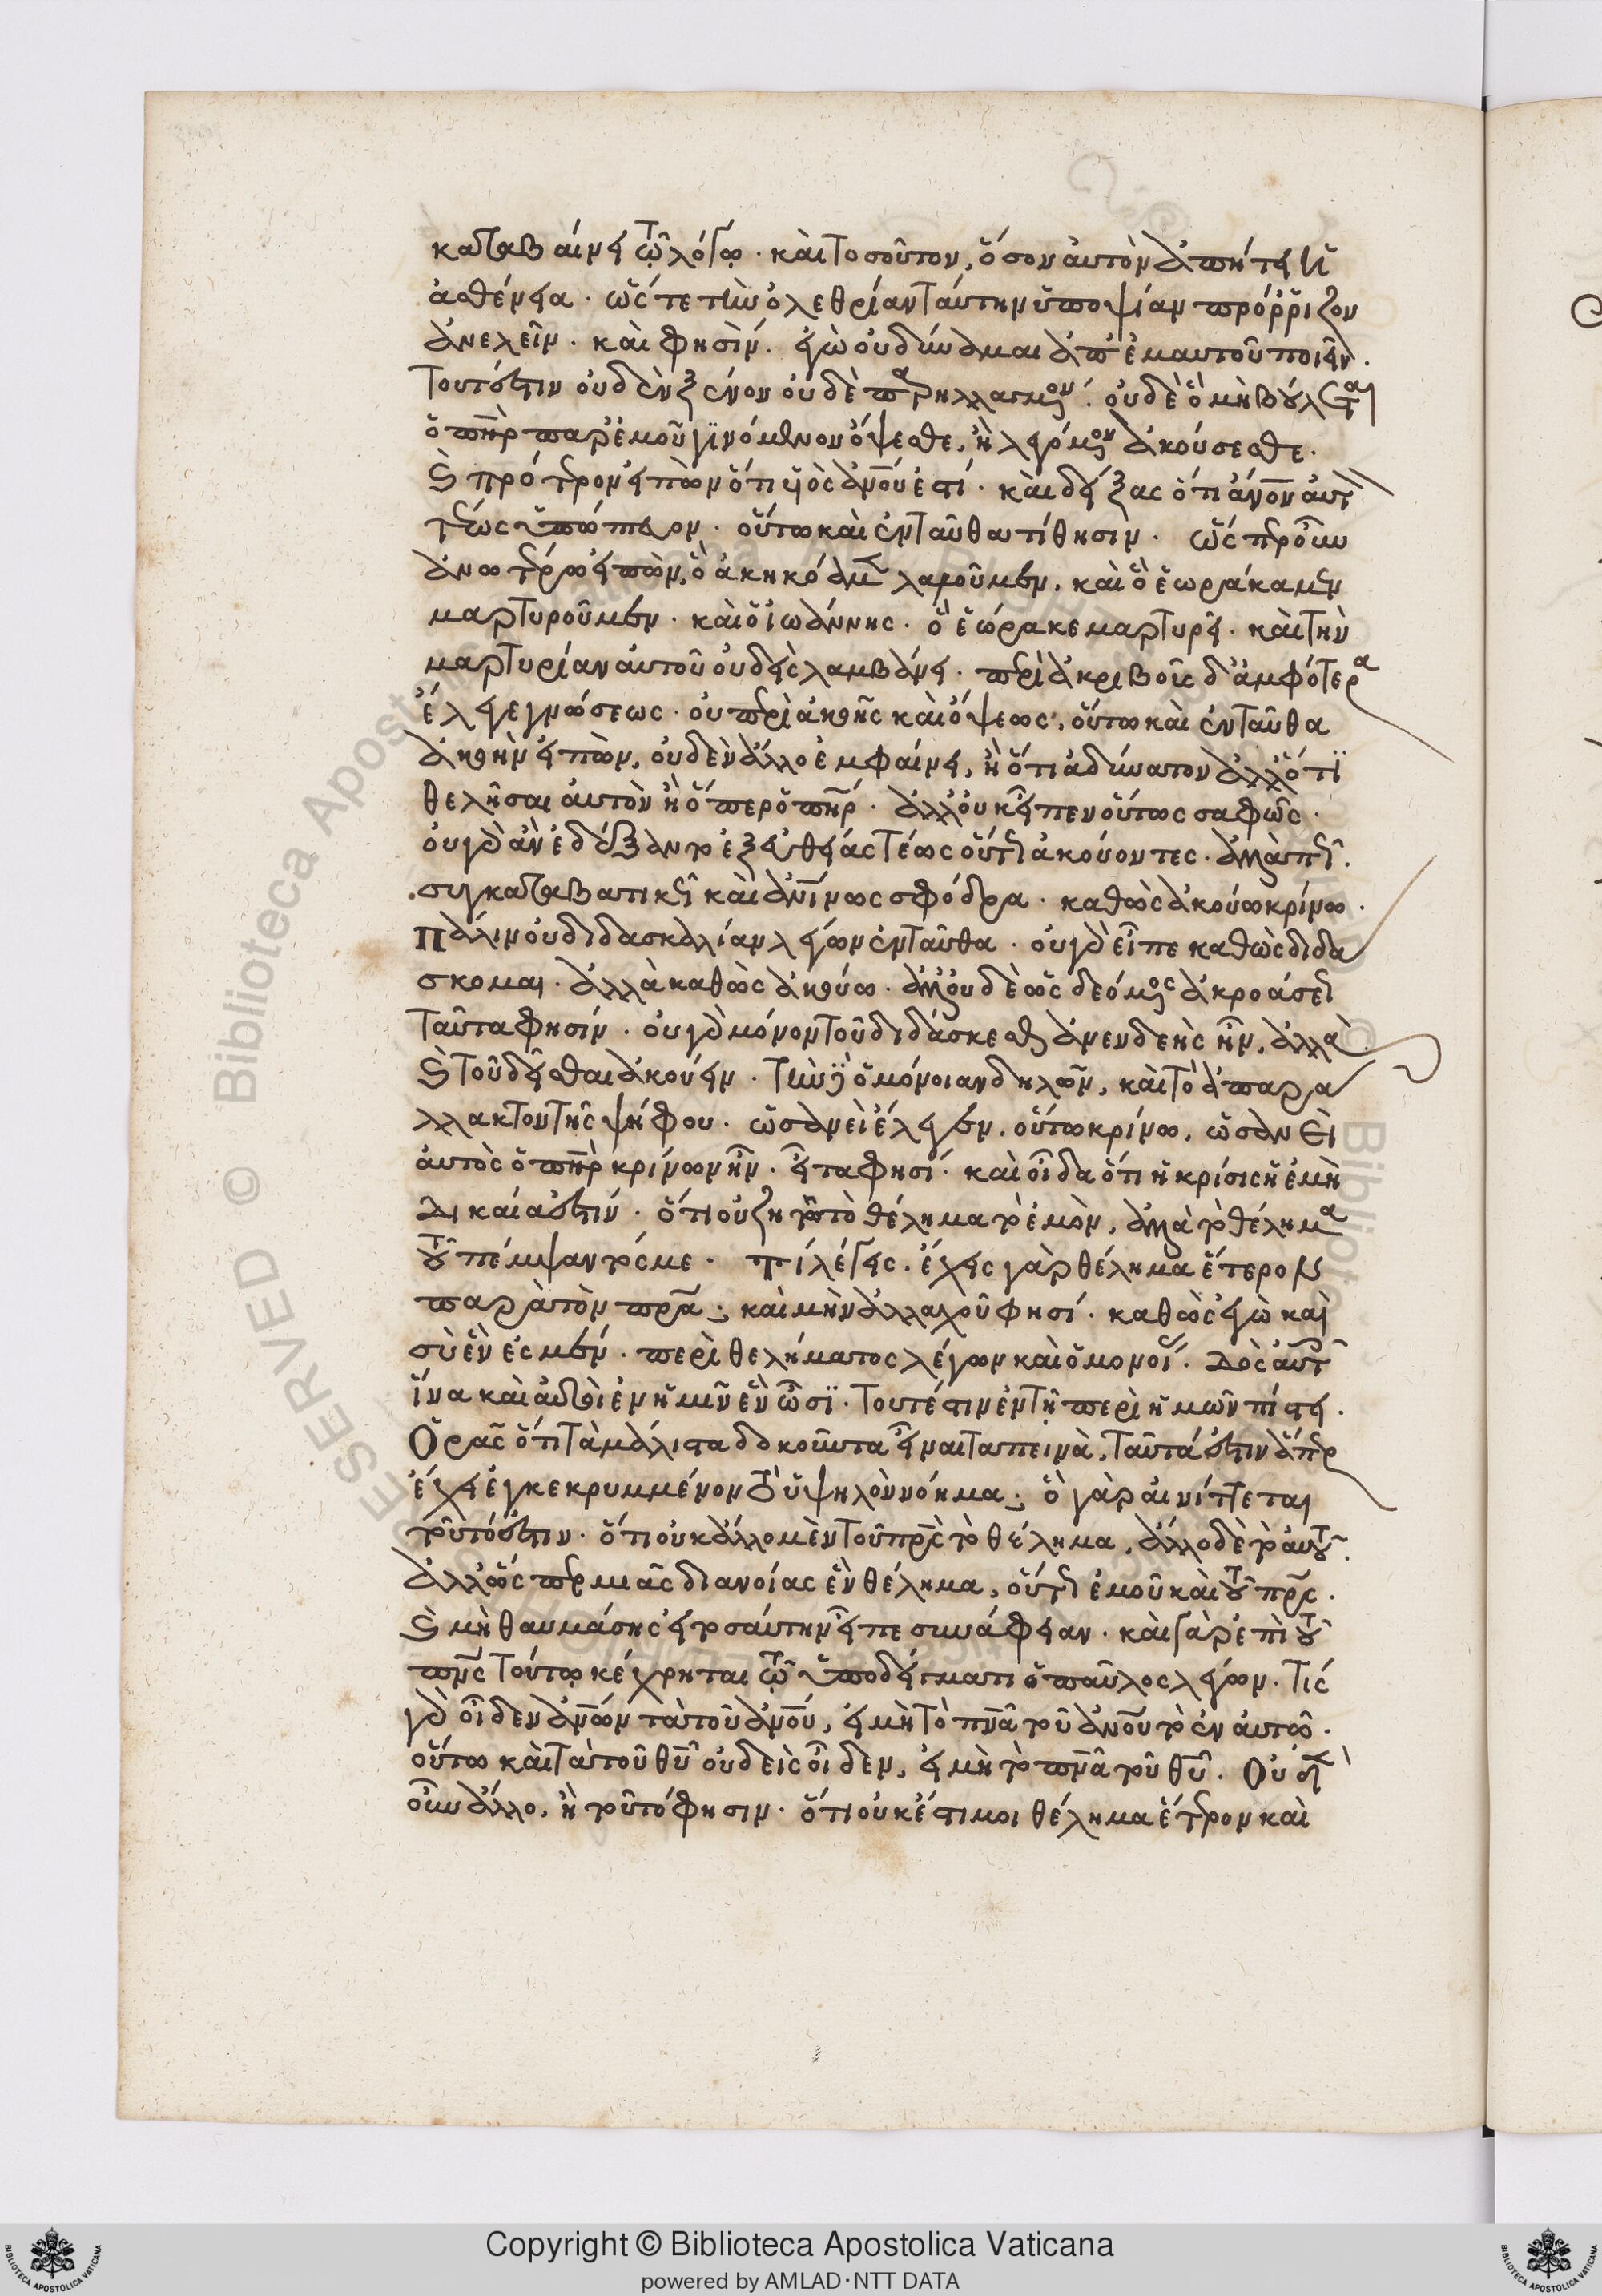 καταβαίνει τῷ λόγῳ. καὶ τοσοῦτον, ὅσον αὐτὸν ἀπῄτει ἡ
ἀσθένεια. ὥστε τὴν ὀλεθρίαν ταύτην ὑποψίαν πρόῤῥιζον
ἀνελεῖν. καὶ φησὶν. ἐγὼ οὐ δύναμαι ἀπ' ἐμαυτοῦ ποιεῖν.
Τουτέστιν οὐδὲν ξένον οὐδὲ παρηλλαγμένον. οὐδὲ ὃ μὴ βούλεται
ὁ πὴρ παρ' ἐμοῦ γϊνόμενον ὄψεσθε, ἢ λεγόμενον ἀκούσεσθε.
καὶ πρότερον εἰπὼν ὅτι υἱὸς ἀνου ἐστί. καὶ δείξας ὅτι ἄνον αὐτὸν
τέως ὑπώπτευον. οὕτω καὶ ἐνταῦθα τίθησιν. ὥσπερ οὖν
ἀνωτέρω εἰπὼν, ὃ ἀκηκόαμεν λαλοῦμεν, καὶ ὃ ἑωράκαμεν
μαρτυροῦμεν. καὶ ὁ ἰωάννης. ὃ ἑώρακε μαρτυρεῖ. καὶ τὴν
μαρτυρίαν αὐτοῦ οὐδεὶς λαμβάνει. περὶ ἀκριβοῦς δ' ἀμφότερα
ἔλεγε γνώσεως. οὐ περὶ ἀκοῆς καὶ ὄψεως, οὕτω καὶ ἐνταῦθα
ἀκοὴν εἰπὼν, οὐδὲν ἄλλο ἐμφαίνει, ἢ ὅτι ἀδύνατον ἄλλό τϊ
θελῆσαι αὐτὸν ἢ ὅπερ ὁ πηρ. ἀλλ' οὐκ εἶπεν οὕτως σαφῶς.
οὐ γὰρ ἂν ἐδέξαντο ἐξ εὐθείας τέως οὕτω ἀκούοντες. ἀλλὰ πῶς.
συγκαταβατικῶς καὶ ἀνίνως σφόδρα. καθὼς ἀκούω κρίνω.
Πάλιν οὐ διδασκαλίαν λέγων ἐνταῦθα. οὐ γὰρ εἶπε καθὼς διδά
σκομαι. ἀλλὰ καθὼς ἀκούω. ἀλλ' οὐδὲ ὡς δεόμενος ἀκροάσεως
ταῦτα φησίν. οὐ γὰρ μόνον τοῦ διδάσκεσθαι ἀνενδεὴς ἦν, ἀλλὰ
καὶ τοῦ δεῖσθαι ἀκούειν. τὴν δὲ ὁμόνοιαν δηλῶν, καὶ τὸ ἀπαρά
λλακτον τῆς ψήφου. ὡσανεὶ ἔλεγεν. οὕτω κρίνω, ὡσὰν εἰ
αὐτὸς ὁ πὴρ κρίνων ἦν. εἶτα φησί. καὶ οἶδα ὅτι ἡ κρίσις ἡ ἐμὴ
Δικαία ἐστίν. ὅτι οὐ ζητῶ τὸ θέλημα τὸ ἐμὸν, ἀλλὰ τὸ θέλημα
τοῦ πέμψαντός με. τί λέγεις. ἔχεις γὰρ θέλημα ἕτερον
παρὰ τὸν πρα; καὶ μὴν ἀλλαχοῦ φησί. καθὼς ἐγὼ καὶ
σὺ ἕν ἐσμεν. περὶ θελήματος λέγων καὶ ὁμονοίας. Δὸς αὐτοῖς
ἵνα καὶ αὐτοὶ ἐν ἡμῖν ἓν ὦσϊ. Τουτέστιν ἐν τῇ περὶ ἡμῶν πίστει.
Ὁρᾶς ὅτι τὰ μάλιστα δοκοῦντα εἶναι ταπεινὰ, ταῦτά ἐστιν ἅπερ
ἔχει ἐγκεκρυμμένον τὸ ὑψηλὸν νόημα; ὃ γὰρ αἰνίττεται
τοῦτό ἐστιν. ὅτι οὐκ ἄλλο μὲν τοῦ πρς τὸ θέλημα, ἄλλο δὲ τὸ αὐτοῦ.
ἀλλ' ὥσπερ μιᾶς διανοίας ἓν θέλημα, οὕτω ἐμοῦ καὶ τοῦ πρς.
καὶ μὴ θαυμάσῃς εἰ τοσαύτην εἶπε συνάφειαν. καὶ γὰρ ἐπὶ τοῦ
πνς τούτῳ κέχρηται τῷ ὑποδείγματι ὁ παῦλος λέγων. τίς
γὰρ οἶδεν ἀνων τὰ τοῦ ἀνου, εἰ μὴ τὸ πνα τοῦ ἀνου τὸ ἐν αὐτῷ.
οὕτω καὶ τὰ τοῦ θυ οὐδεὶς οἶδεν, εἰ μὴ τὸ πνα τοῦ θυ. Οὐδὲν
οὖν ἄλλο, ἢ τοῦτό φησιν. ὅτι οὐκ ἔστι μοι θέλημα ἕτερον καὶ
Copyright © Biblioteca Apostolica Vaticana
powered by AMLAD·NTT DATA